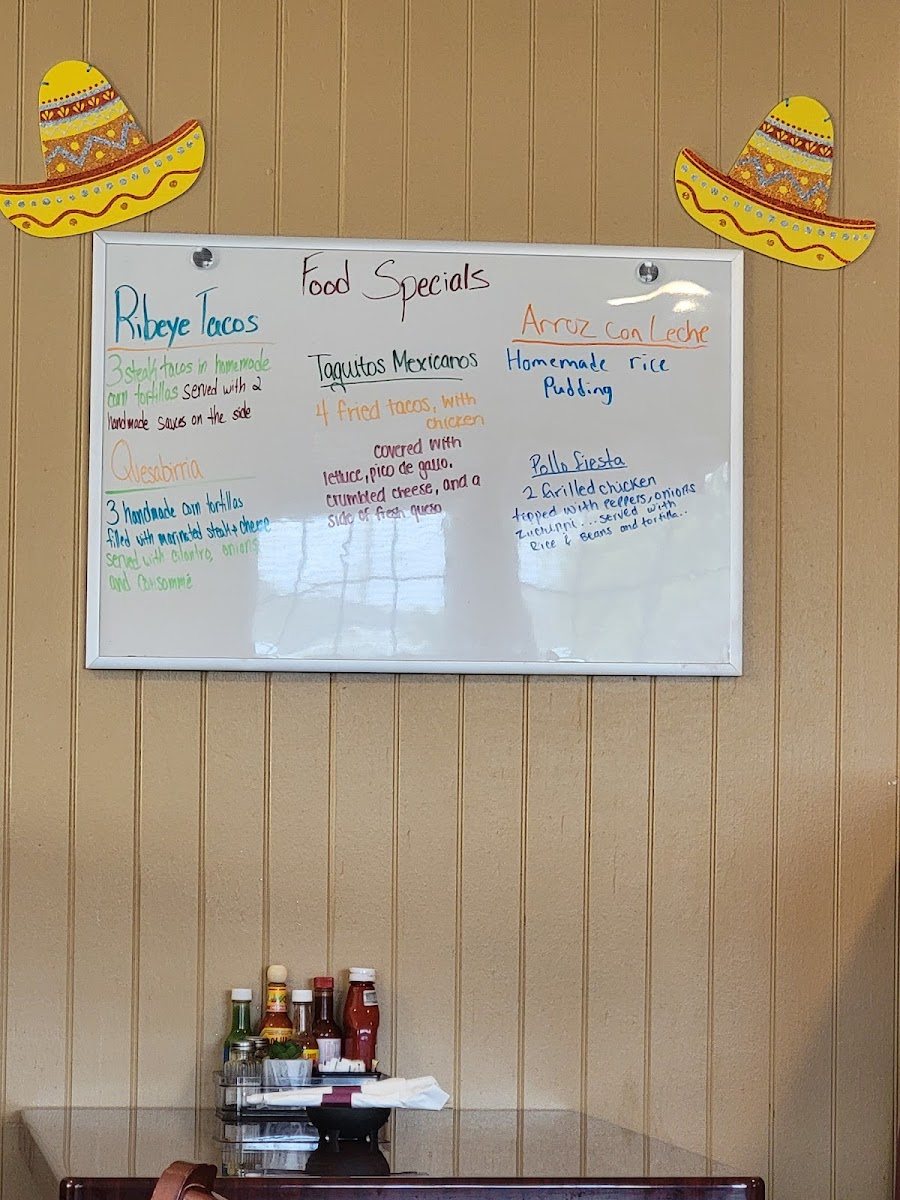 Food Specials
Ribeye Tacos
3 steak tacos in homemade
corn tortillas served with 2
handmade sauces on the side
Quesabirria
3 handmade corn tortillas
filled with marinated steak + cheese
served with cilantro, onions
and consommé
Taquitos Mexicanos
4 fried tacos, with
chicken
covered with
lettuce, pico de gallo,
crumbled cheese, and a
side of fresh queso
Arroz con Leche
Homemade rice
Pudding
Pollo fiesta
2 Grilled chicken
topped with peppers, onions
zuchinni... served with
Rice & Beans and tortilla...